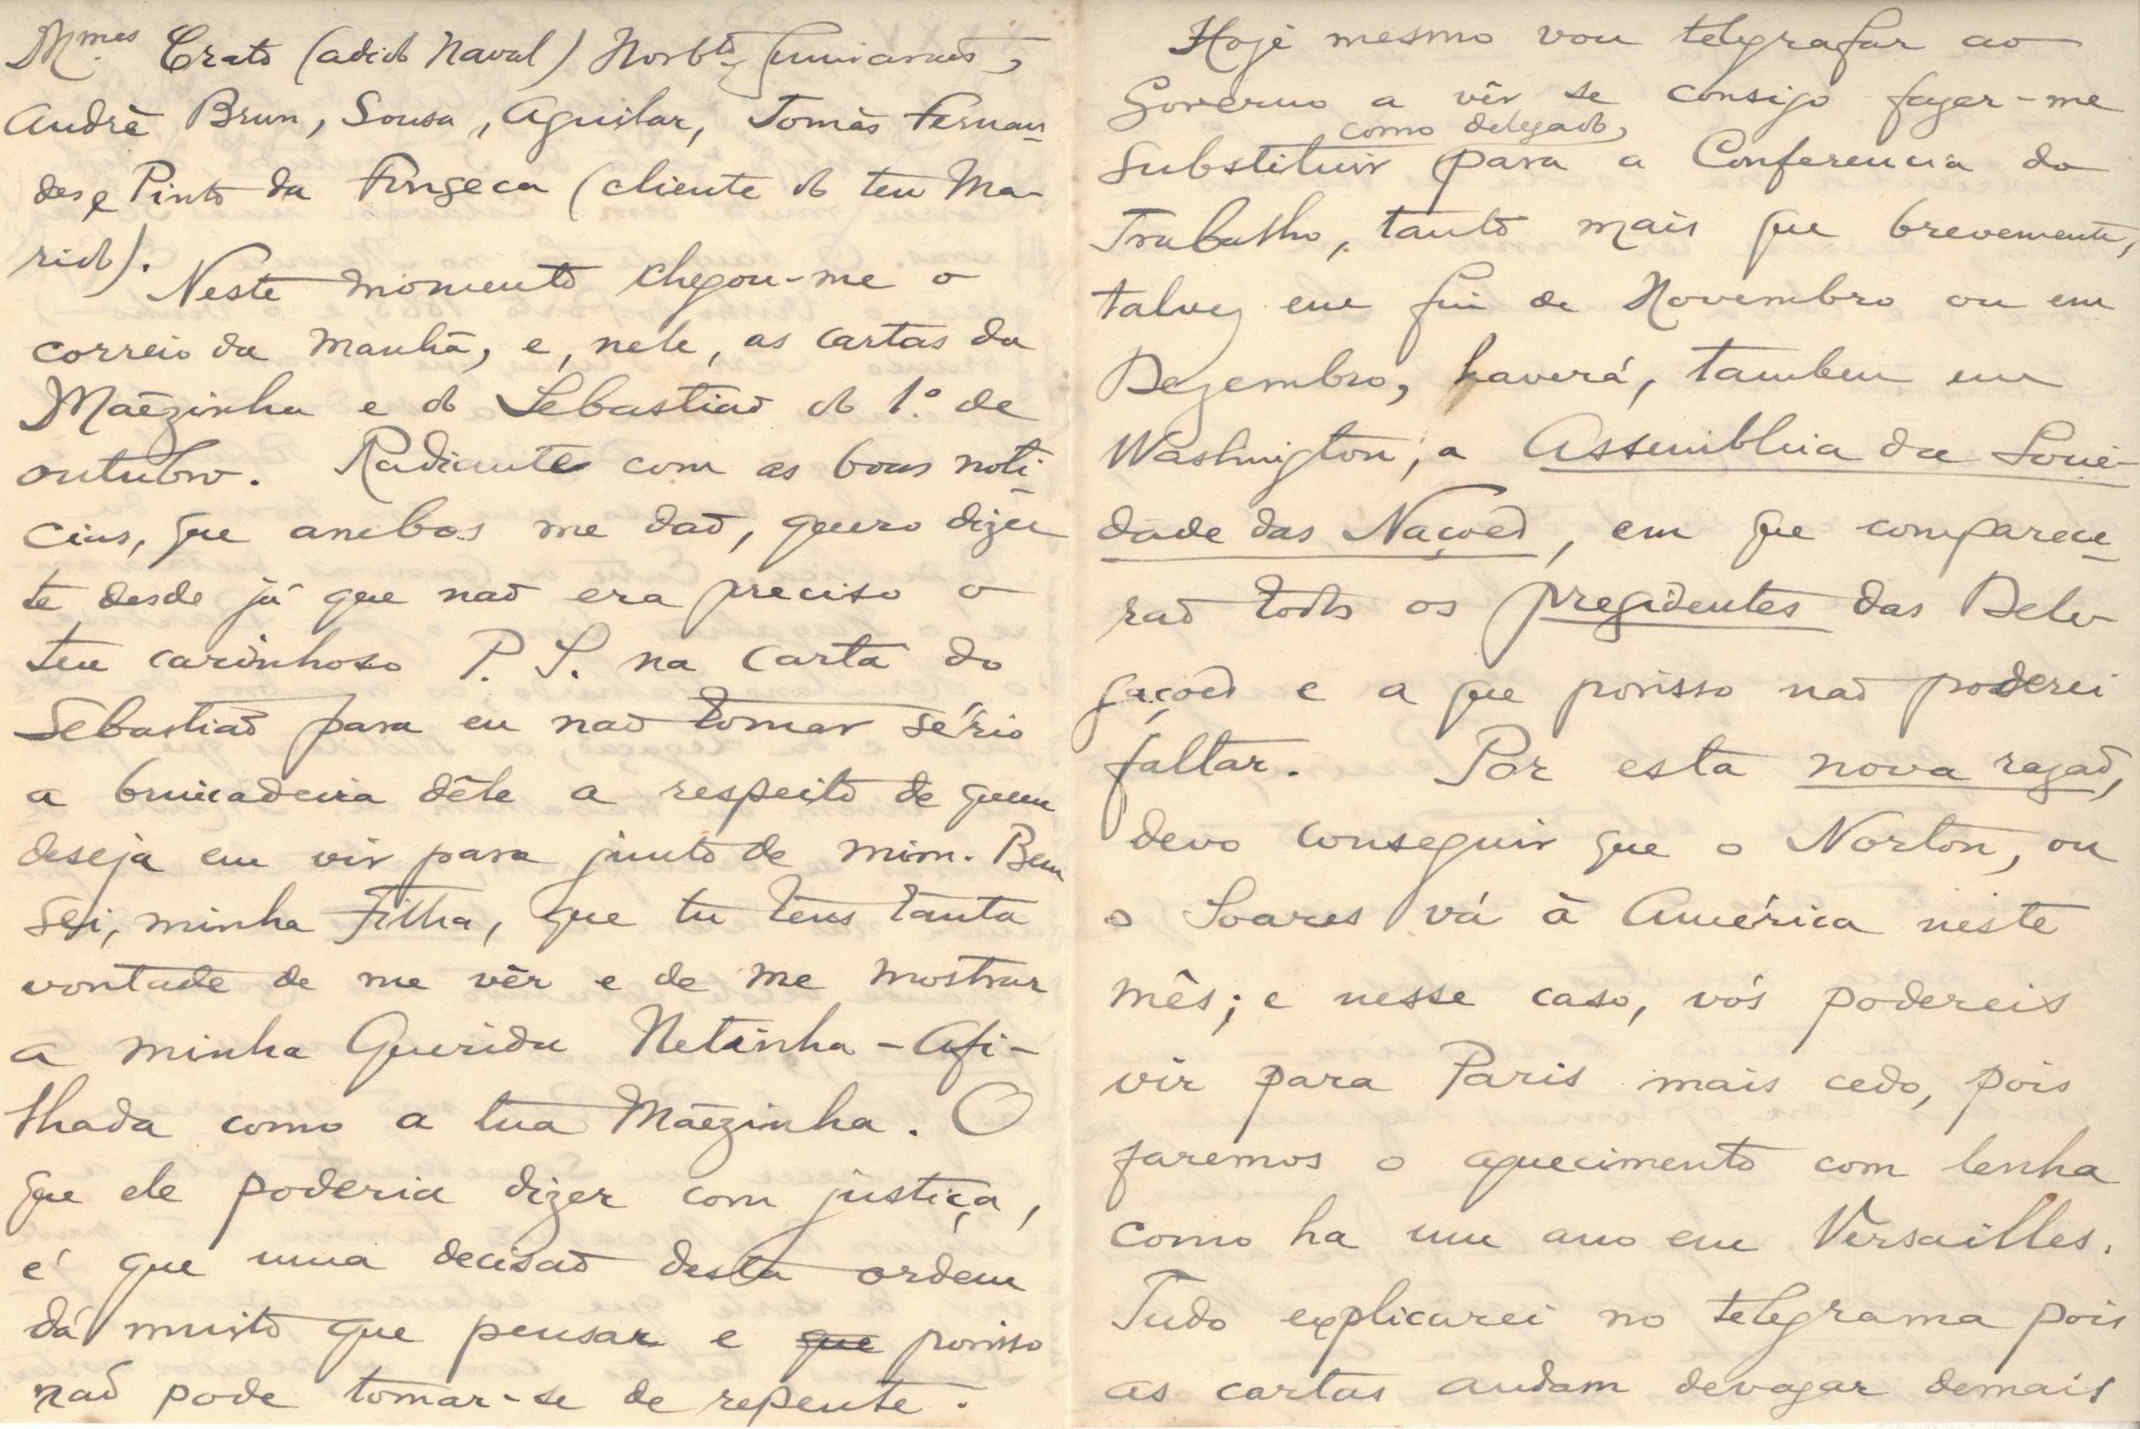 Mmes Crato (adido Naval) Norbto Guimarães,
André Brun, Sousa, Aguilar, Tomás Fernan-
des e Pinto da Fonseca (cliente do teu Ma-
rido).
Neste momento chegou-me o
correio da manhã, e, nele, as cartas da
Mãezinha e do Sebastião do 1.º de
outubro. Radiante com as boas noti-
cias, que ambos me dão, quero dizer
te desde já que não era preciso o
teu carinhoso P. S. na carta do
Sebastião para eu não tomar sério
a brincadeira dêle a respeito de quem
deseja em vir para junto de mim. Bem
sei, minha Filha, que tu tens tanta
vontade de me vêr e de me mostrar
a minha Querida Netinha-Afi-
lhada como a tua Mãezinha. O
que ele poderia dizer com justiça,
é que uma decisão desta ordem
dá muito que pensar e que porisso
não pode tomar-se de repente.
Hoje mesmo vou telegrafar ao
Governo a vêr se consigo fazer-me
como delegado,
substituir para a Conferencia do
Trabalho, tanto mais que brevemente,
talvez em fim de Novembro ou em
Dezembro, haverá, tambem em
Washington, a Assembleia da Socie-
dade das Nações, em que comparece-
rão todos os presidentes das Dele-
gações e a que porisso não poderei
faltar. Por esta nova razão,
devo conseguir que o Norton, ou
o Soares vá à América neste
mês; e nesse caso, vós podereis
vir para Paris mais cedo, pois
faremos o aquecimento com lenha
como ha um ano em Versailles.
Tudo explicarei no telegrama pois
as cartas andam devagar demais